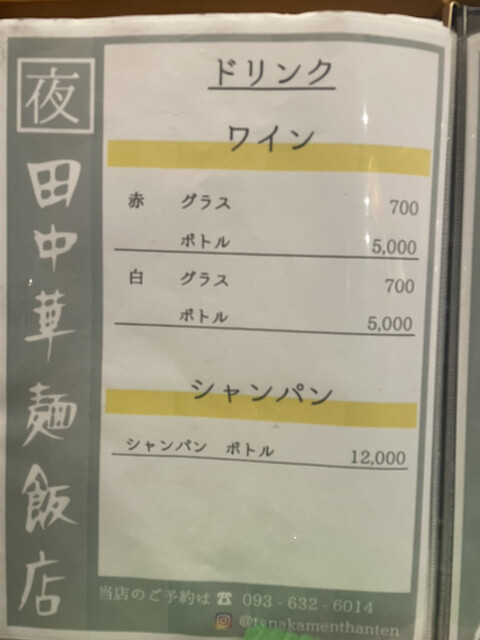 夜
田中華麺飯店
ドリンク
ワイン
赤 グラス 700
ボトル 5,000
白 グラス 700
ボトル 5,000
シャンパン
シャンパン ボトル 12,000
当店のご予約は ☎ 093-632-6014
@tanakamenthanten